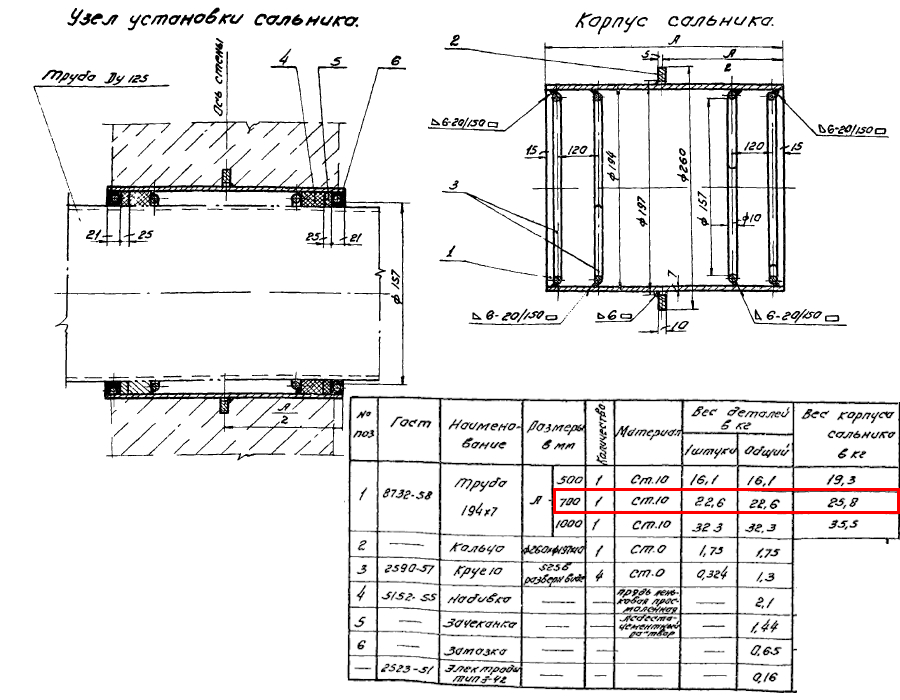 Узел установки сальника.
Труба Ду 125
Ось стены
4
5
6
21
25
25
21
ф157
Л
2
Корпус сальника.
2
Л
5
Л
2
6-20/150
6-20/150
15
120
120
15
ф194
ф197
ф260
ф157
ф10
3
1
7
6-20/150
6
6-20/150
10
№ поз
Гост
Наимено-
вание
Размеры
в мм
Количество
Материал
Вес деталей
в кг
1 штуки
Общий
Вес корпуса
сальника
в кг
1
8732-58
Труба
194×7
Л-
500 1 Ст.10 16,1 16,1 19,3
700 1 Ст.10 22,6 22,6 25,8
1000 1 Ст.10 32,3 32,3 35,5
2 — Кольцо ф260×ф197×10 1 Ст.0 1,75 1,75
3 2590-57 Круг 10 525 в
разверн виде 4 Ст.0 0,324 1,3
4 5152-55 Набивка — — Прядь пень-
ковая прос-
моленная — 2,1
5 — Зачеканка — — Асбесто-
цементный
раствор — 1,44
6 — Замазка — — — 0,65
— 2523-51 Электроды
тип Э-42 — — — — 0,16